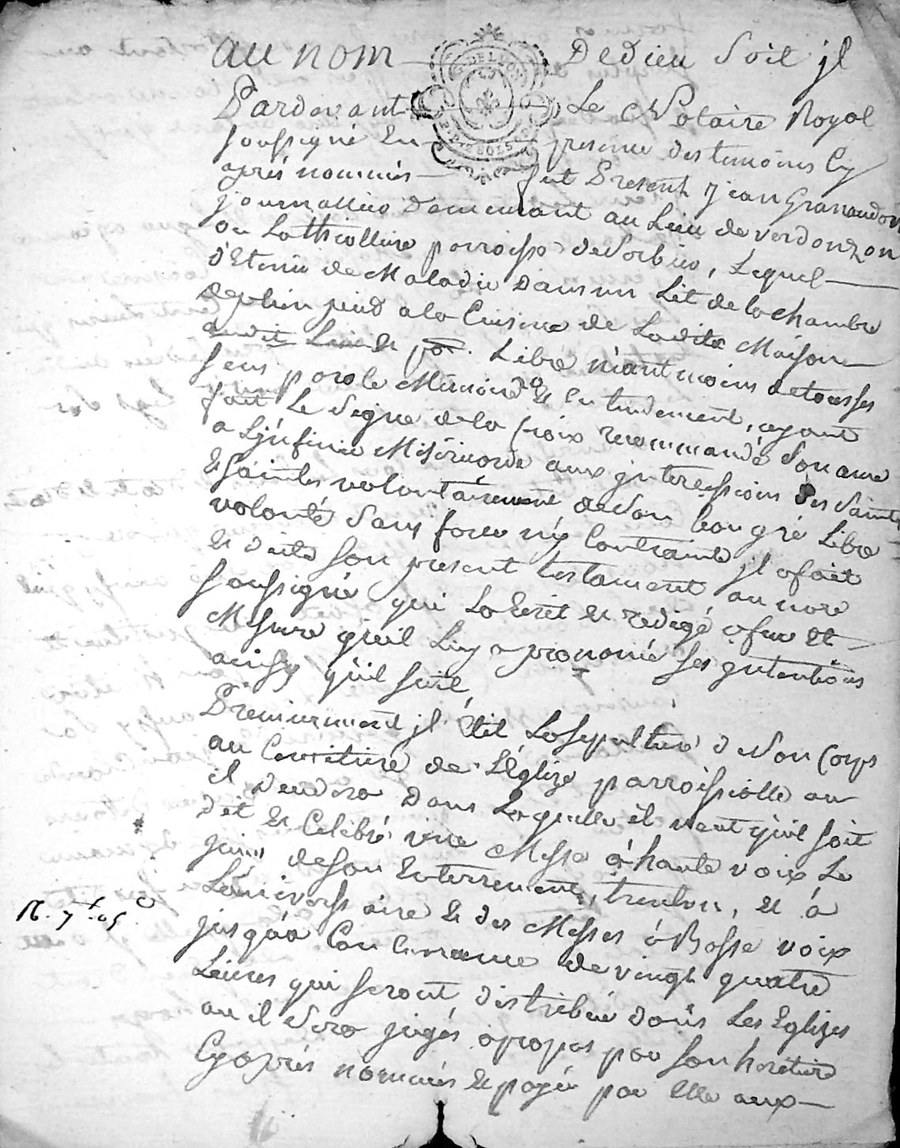 au nom De dieu Soit jl
Pardevant Le Notaire Royal
soussigné En presence des temoins Cy
aprés nommés fut Present jean Granaudon
journallier Demeurant au Lieu de verdonzon
ou Lathiolliere parroisse de Sorbier, Lequel
d'Etenu de Maladie Dans un Lit de la chambre
de plein pied a la Cuisine de Ladite Maison
audit Lieu & par. Libre néantmoins de tous ses
sens parole Memoire & Entendement, ayant
fait Le Signe de la Croix recommandé Son ame
a L'jnfinie Miséricorde aux jntercessions Des Saints
& Saintes volontairement de Son bon gré Libre
volonté Sans force ny Contrainte jl a fait
& dicté son present testament au nore
soussigné qui La Ecrit & redigé a fur &
Mesure qu'il Luy a prononcé ses jntentions
ainsy qu'il suit
Premierement jl Elit La sepulture de Son Corps
au Cimetiere de L'Eglize parroissialle ou
il Dendra Dans Laquelle il veut qu'il soit
dit & Celebré une Messe à haute voix Le
jour de son Enterrement, trentou, & à
L'anniversaire & des Messes à Basse voix
jusqu'à Concurrance de vingt quatre
Livres qui seront distribué dans Les Eglizes
ou il Sera jugés apropos par son héritiere
Cy aprés nommés & payés par Elle aux